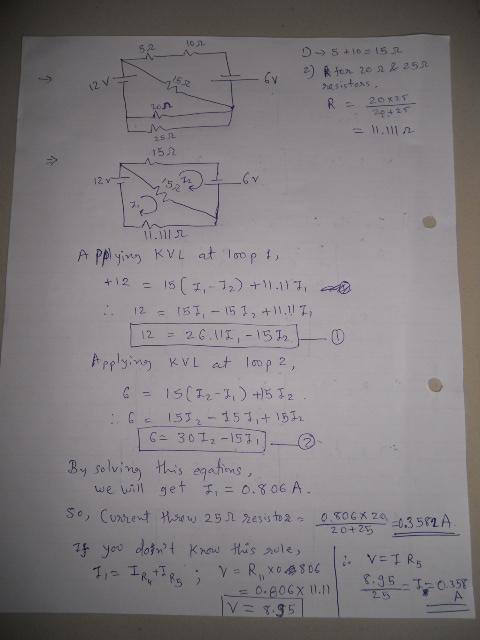 5Ω 10Ω
⇒ 12V 15Ω 6V
20Ω
25Ω
1) → 5 + 10 = 15 Ω
2) R for 20 Ω & 25Ω
resistors,
R = 20×25 / 20+25
= 11.111 Ω
⇒ 15Ω
12V 15Ω I2 6V
I1
11.111 Ω
Applying KVL at loop 1,
+12 = 15(I1-I2) + 11.11 I1
∴ 12 = 15I1 - 15I2 + 11.11 I1
12 = 26.11I1 - 15I2 — ①
Applying KVL at loop 2,
6 = 15(I2-I1) + 15I2.
∴ 6 = 15I2 - 15I1 + 15I2
6 = 30I2 - 15I1 — ②
By solving this eqations,
we will get I1 = 0.806 A.
So, Current throw 25Ω resistor = 0.806 × 20 / 20+25 = 0.3582 A.
If you dofn't know this rule,
I1 = IR4 + IR5 ; V = R11 × 0.806
= 0.806 × 11.11
V = 8.95
∴ V = I R5
8.95 / 25 = I = 0.358
A